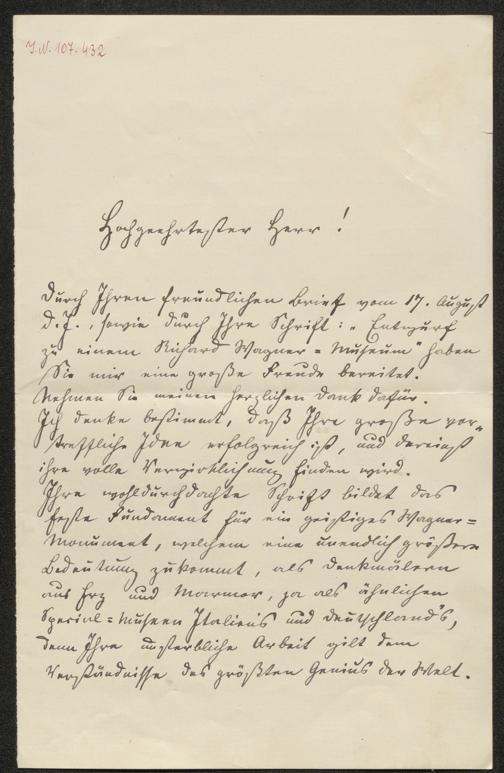 J.N. 107.432
Hochgeehrtester Herr!
Durch Ihren freundlichen Brief vom 17. August
d. J., sowie durch Ihre Schrift: „Entwurf
zu einem Richard Wagner=Museum" haben
Sie mir eine große Freude bereitet.
Nehmen Sie meinen herzlichen Dank dafür.
Ich denke bestimmt, daß Ihre große vor„
treffliche Idee erfolgreich ist, und dereinst
ihre volle Verwirklichung finden wird.
Ihre wohldurchdachte Schrift bildet das
feste Fundament für ein geistiges Wagner=
Monument, welchem eine unendlich größere
Bedeutung zukommt, als Denkmälern
aus Erz und Marmor, ja als ähnlichen
Special=Museen Italiens und Deutschland's,
denn Ihre unsterbliche Arbeit gilt dem
Verständnisse des größten Genius der Welt.